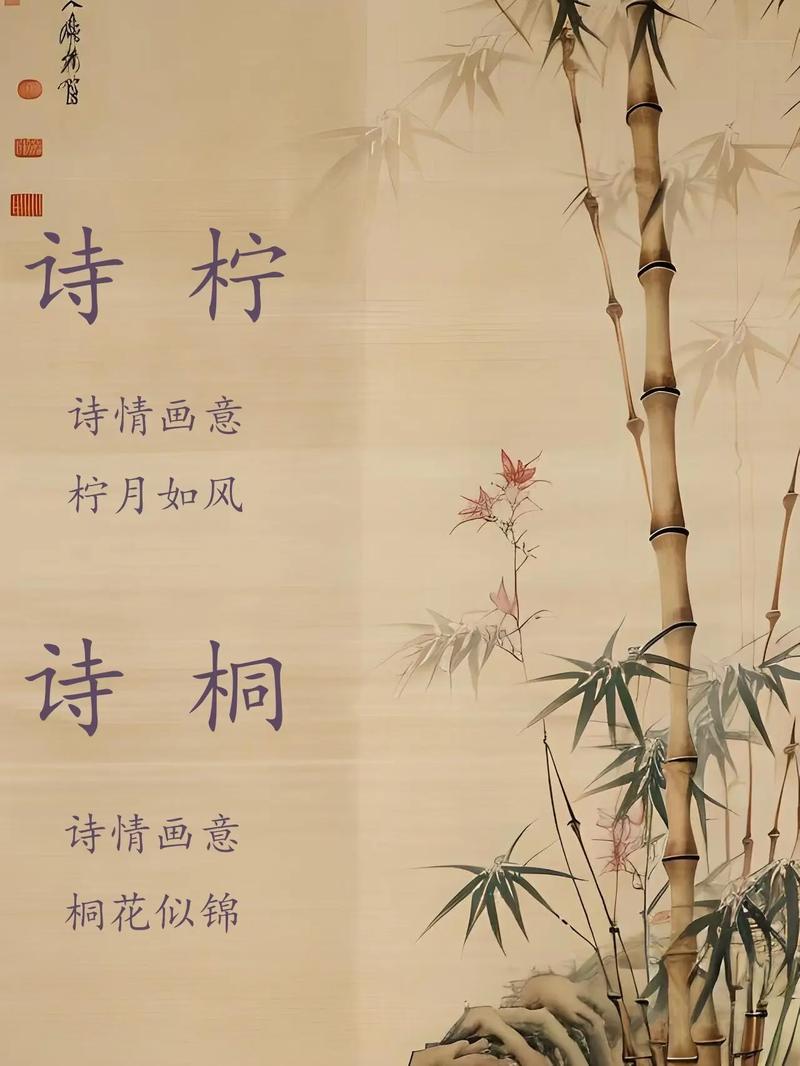 诗 柠
诗情画意
柠月如风
诗 桐
诗情画意
桐花似锦